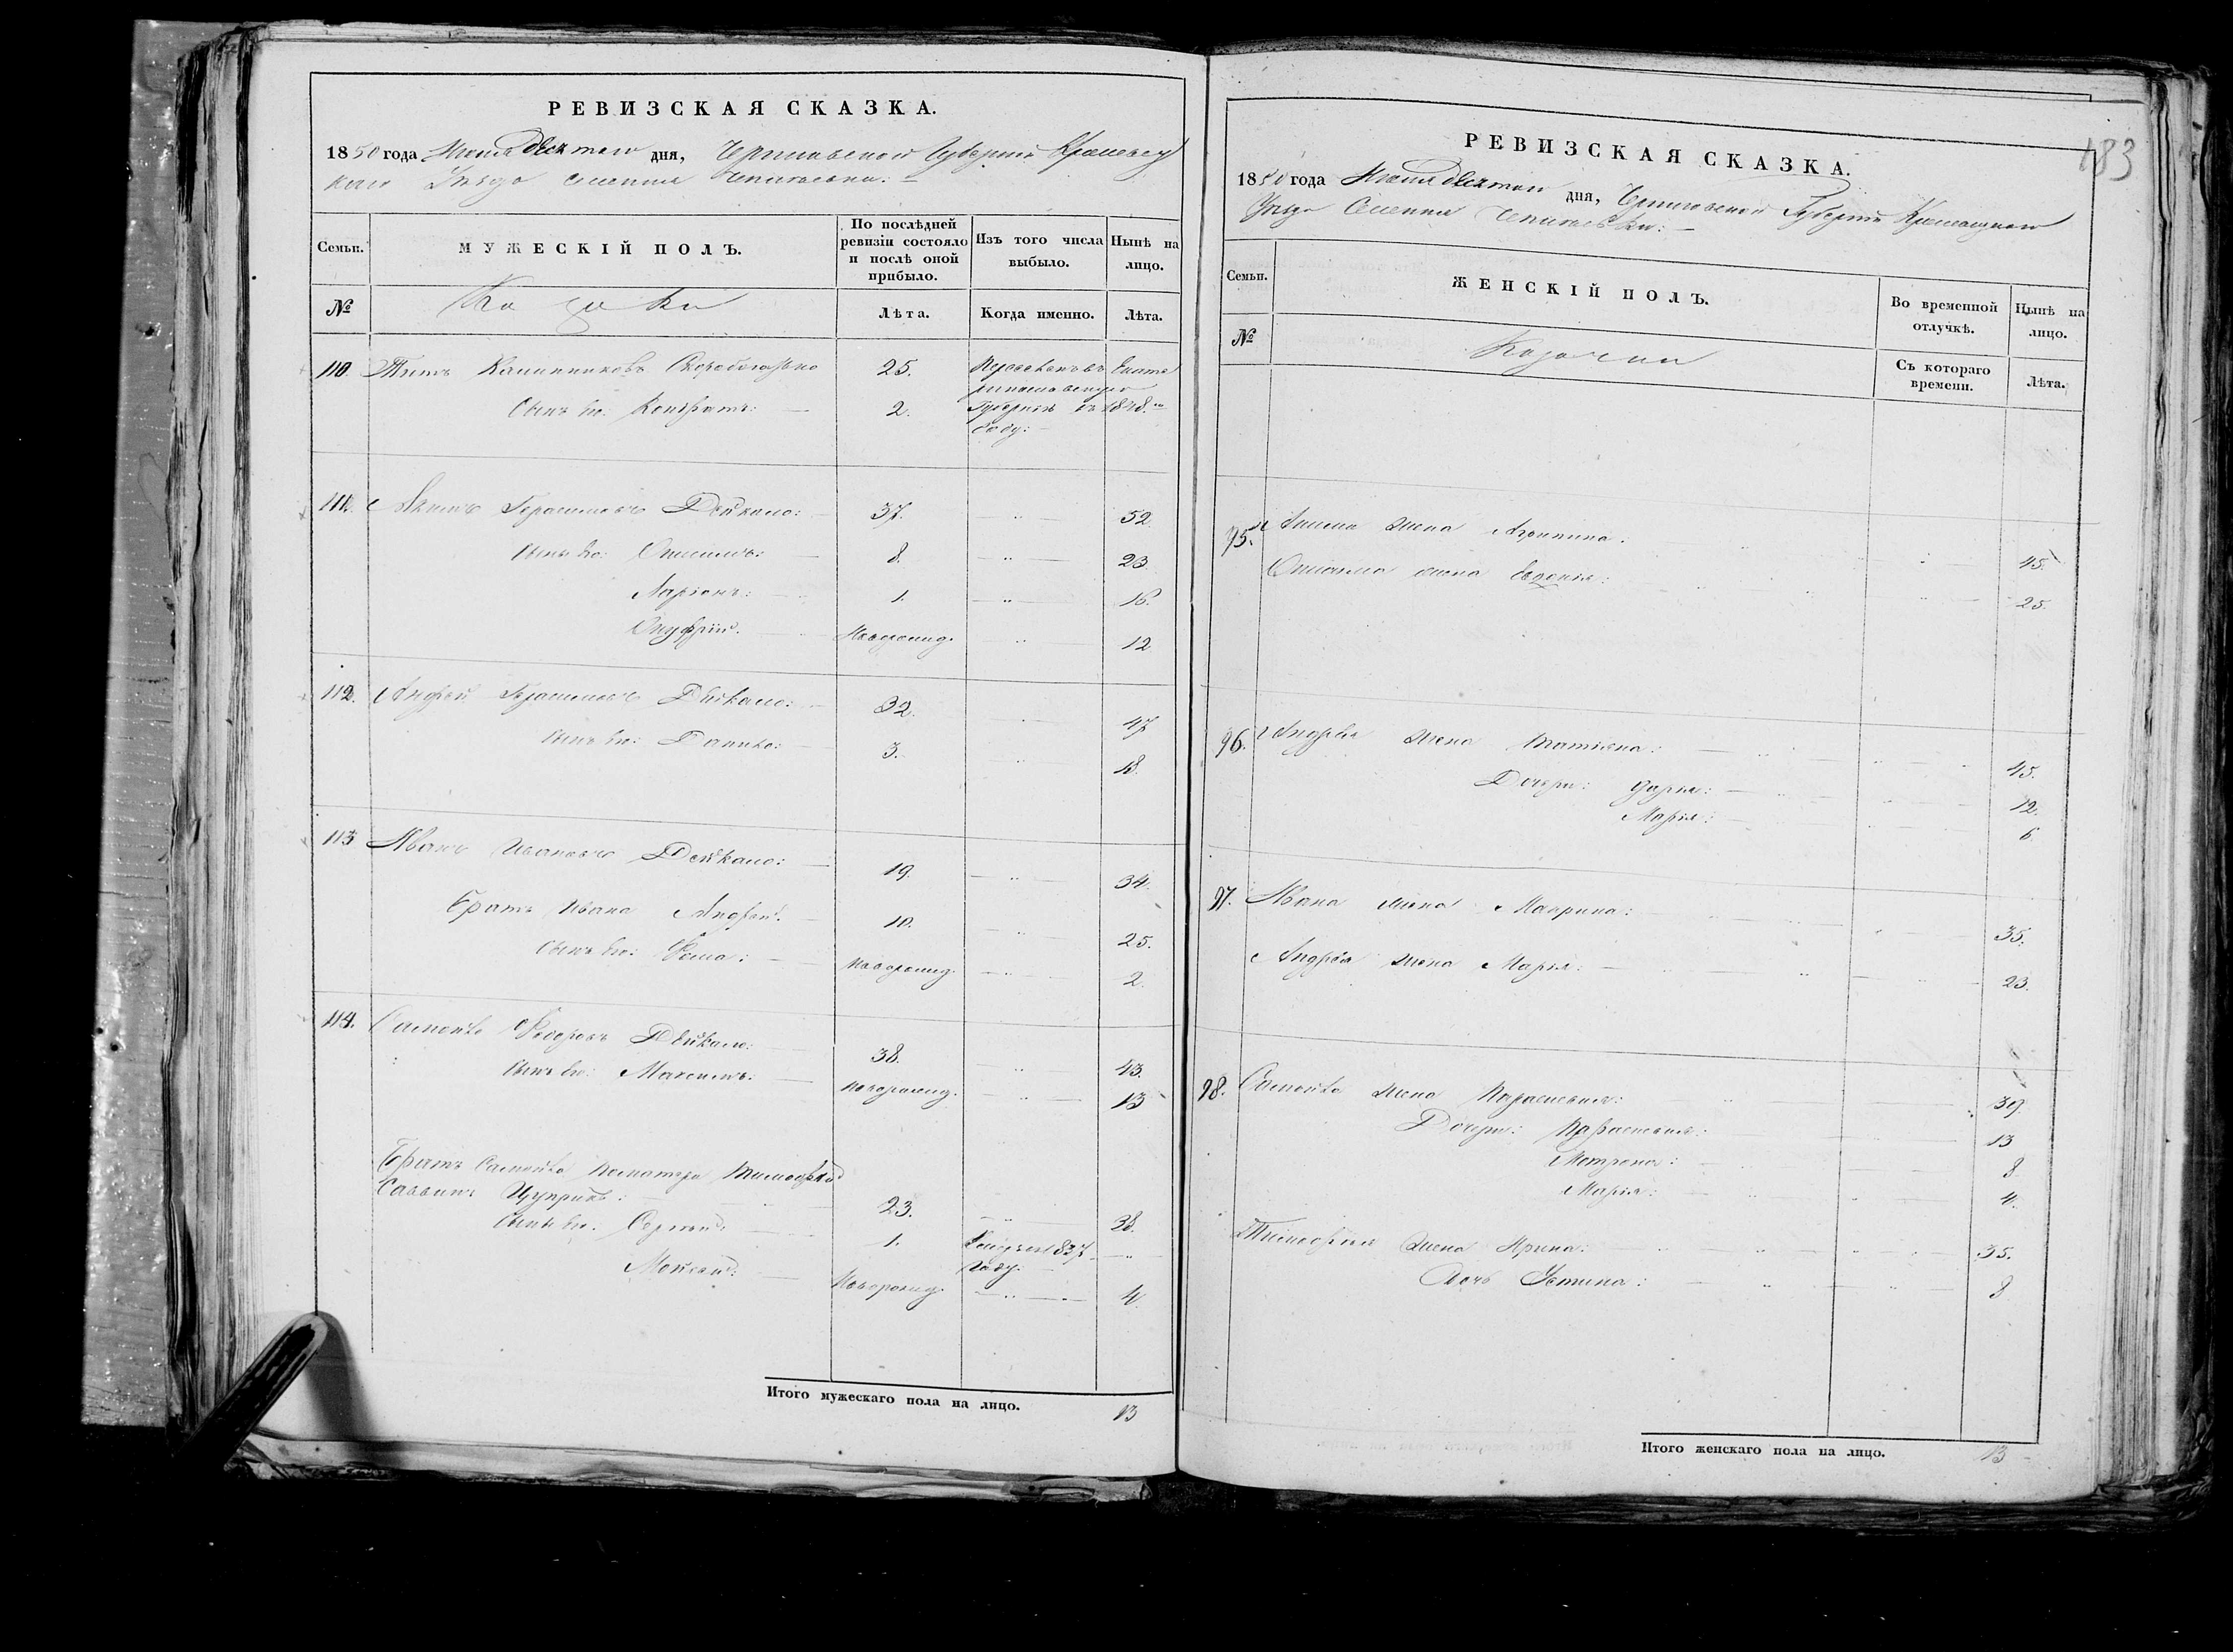 РЕВИЗСКАЯ СКАЗКА.
1850 года Июня десятого дня, Черниговской Губернии Кролевец
кого Уезда селения
Семьи. МУЖЕСКІЙ ПОЛЪ. По послѣдней ревизіи состояло и послѣ оной прибыло. Изъ того числа выбыло. Нынѣ на лицо.
№ Козаки Лѣта. Когда именно. Лѣта.
110. Титъ Скоробогатько 25. Екате
ринославскую
Сынъ его: Кондратъ: 2. Губернію въ 1848.
году:
111. Якимъ Герасимовъ Дейкало: 37. 52.
Сынъ его: Онисимъ: 8. 23.
Ларіонъ: 1. 16.
Онуфрій. Новорожд. 12
112. Андрей Герасимовъ Дейкало: 32. 47
Сынъ его: Данило: 3. 18.
113 Иванъ Ивановъ Дейкало: 19. 34.
Братъ Ивана Андрей: 10. 25.
Сынъ его: Фома: Новорожд. 2.
114. Самойло Федоровъ Дейкало: 38. 43.
Сынъ его: Максимъ: Новорожд. 13
Братъ Самойла Тимофей
Саввинъ Цуприкъ: 23. 38.
Сынъ его: Сергій: 1. 1837
году:
Мойсей: Новорожд. 4.
Итого мужескаго пола на лицо. 13
183
РЕВИЗСКАЯ СКАЗКА.
1850 года Июня десятого дня, Черниговской Губерніи Кролевецкого
Уезда Селения
Семьи. ЖЕНСКІЙ ПОЛЪ. Во временной отлучкѣ. Нынѣ на лицо.
№ Козачки Съ котораго времени. Лѣта.
95. Акима жена 45.
Онисима жена Евдокія: 25.
96. Андрея жена Татіяна: 45.
Дочери: Дарія: 12.
Марія: 6.
97. Ивана жена Маврина: 35.
Андрея жена Марія: 23.
98. Самойла жена Параскевія: 39.
Дочери: Параскевія: 13
Мотрона: 8
Марія: 4.
Тимофея жена Ирина: 35.
Дочь Устина: 8
Итого женскаго пола на лицо. 13